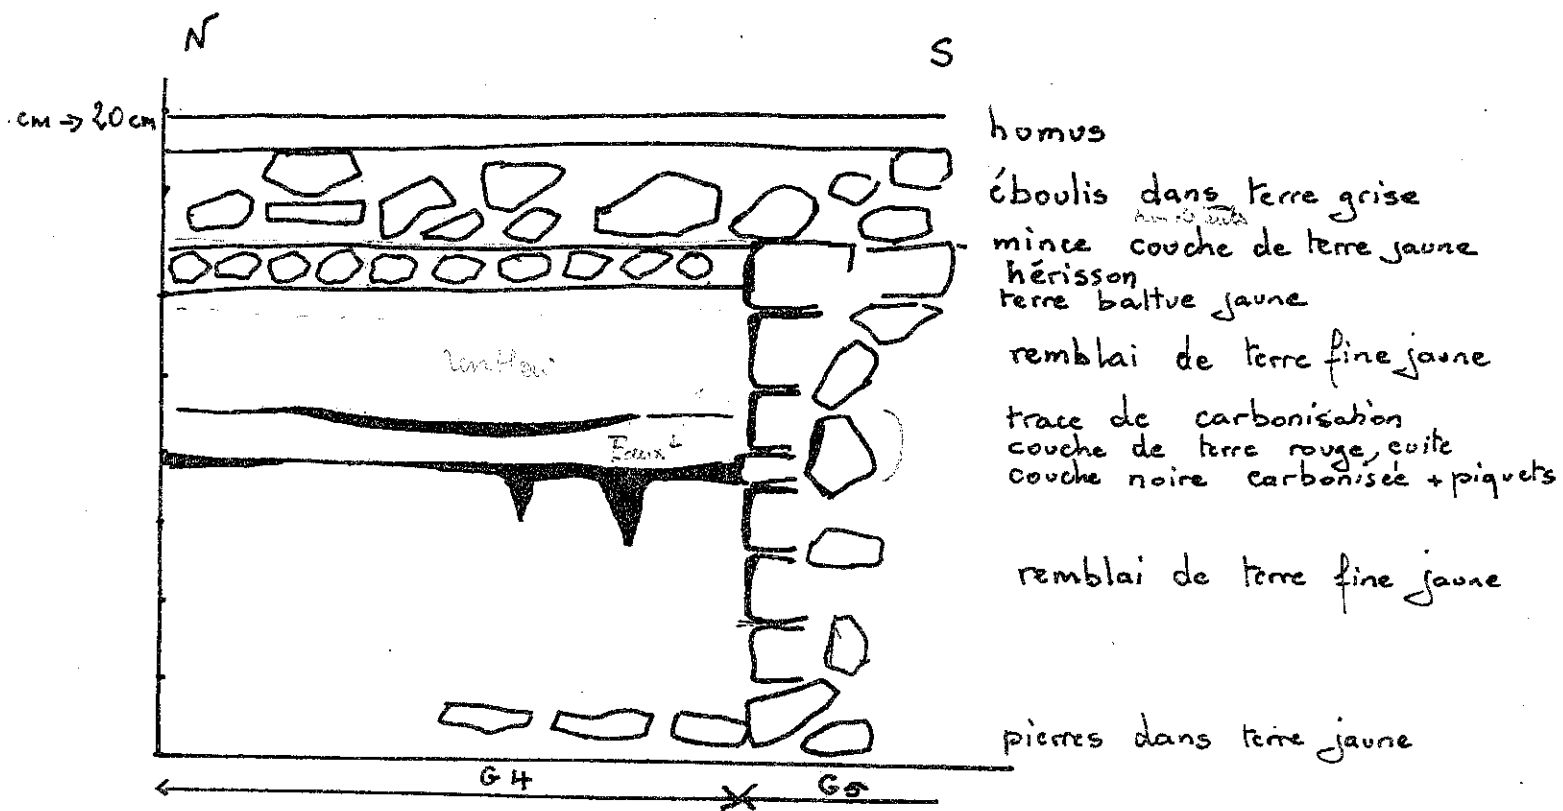 N
S
cm → 20 cm
homus
éboulis dans terre grise
mince couche de terre jaune
hérisson
terre battue jaune
remblai de terre fine jaune
trace de carbonisation
couche de terre rouge, cuite
couche noire carbonisée + piquets
remblai de terre fine jaune
pierres dans terre jaune
G4
G5